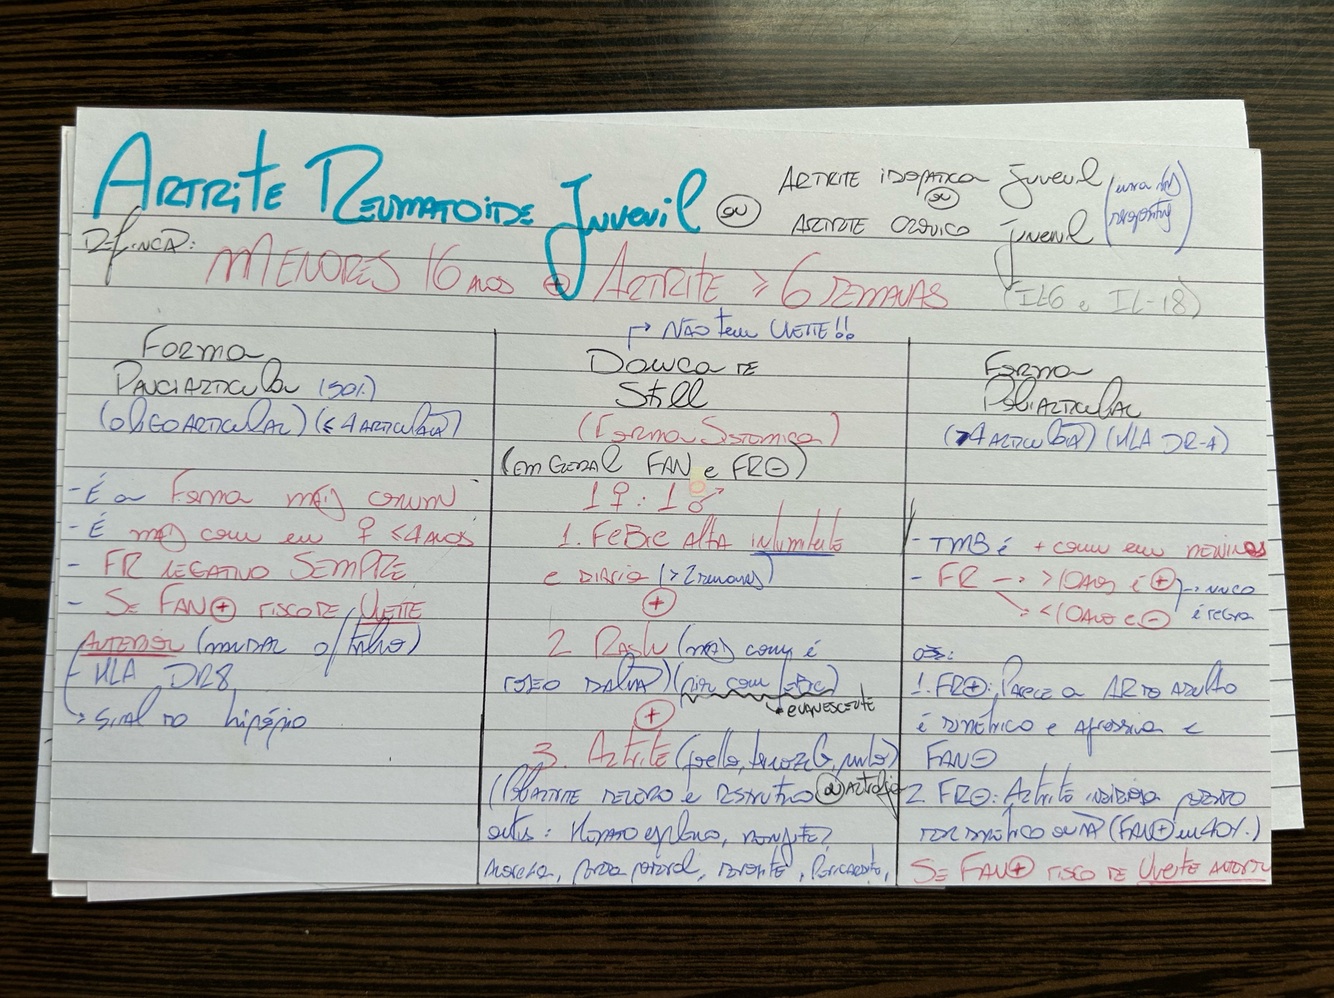 Artrite Reumatoide Juvenil (ou) Artrite idiopática juvenil
(ou)
Artrite crônica juvenil
Definição: Menores 16 anos + Artrite ≥ 6 semanas (IL6 e IL-18)
Forma
Pauciarticular (50%)
(oligoarticular) (≤ 4 articulação)
- É a forma mais comum
- É mais comum em ♀ < 4 anos
- FR negativo SEMPRE
- Se FAN⊕ risco de Uveíte
Anterior (mudar o filho)
HLA DR8
→ sinal do hipópio
→ Não tem Uveíte!!
Doença de
Still
(Forma Sistêmica)
(em geral FAN e FR⊖)
1♀ : 1♂
1. Febre alta intermitente
e diária (> 2 semanas)
⊕
2 Rash (mais comum é
róseo salmão) (piora com febre)
→ evanescente
⊕
3. Artrite (joelho, tornozelo, punho)
(Poliartrite e destrutiva (ou) artralgia
outros: Hepatoespleno,
Anorexia, perda ponderal, Pericardite,
Forma
Poliarticular
(>4 articulação) (HLA DR-4)
- TMB é + comum em meninas
- FR --> >10 anos é ⊕
<10 anos é ⊖
--> nunca
é regra
OBS:
1. FR⊕: Parece a AR do adulto
é simétrico e agressiva e
FAN⊖
2 FR⊖: Artrite podendo
ser simétrico ou Ñ (FAN⊕ em 40%)
Se FAN⊕ risco de Uveíte anterior